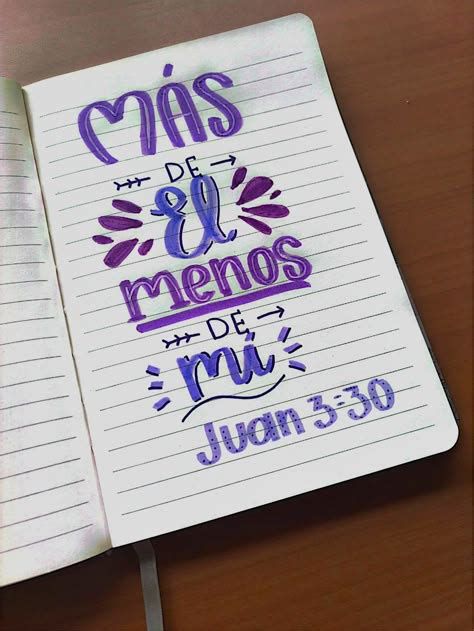 MÁS
DE
Él
menos
DE
mí
Juan 3:30